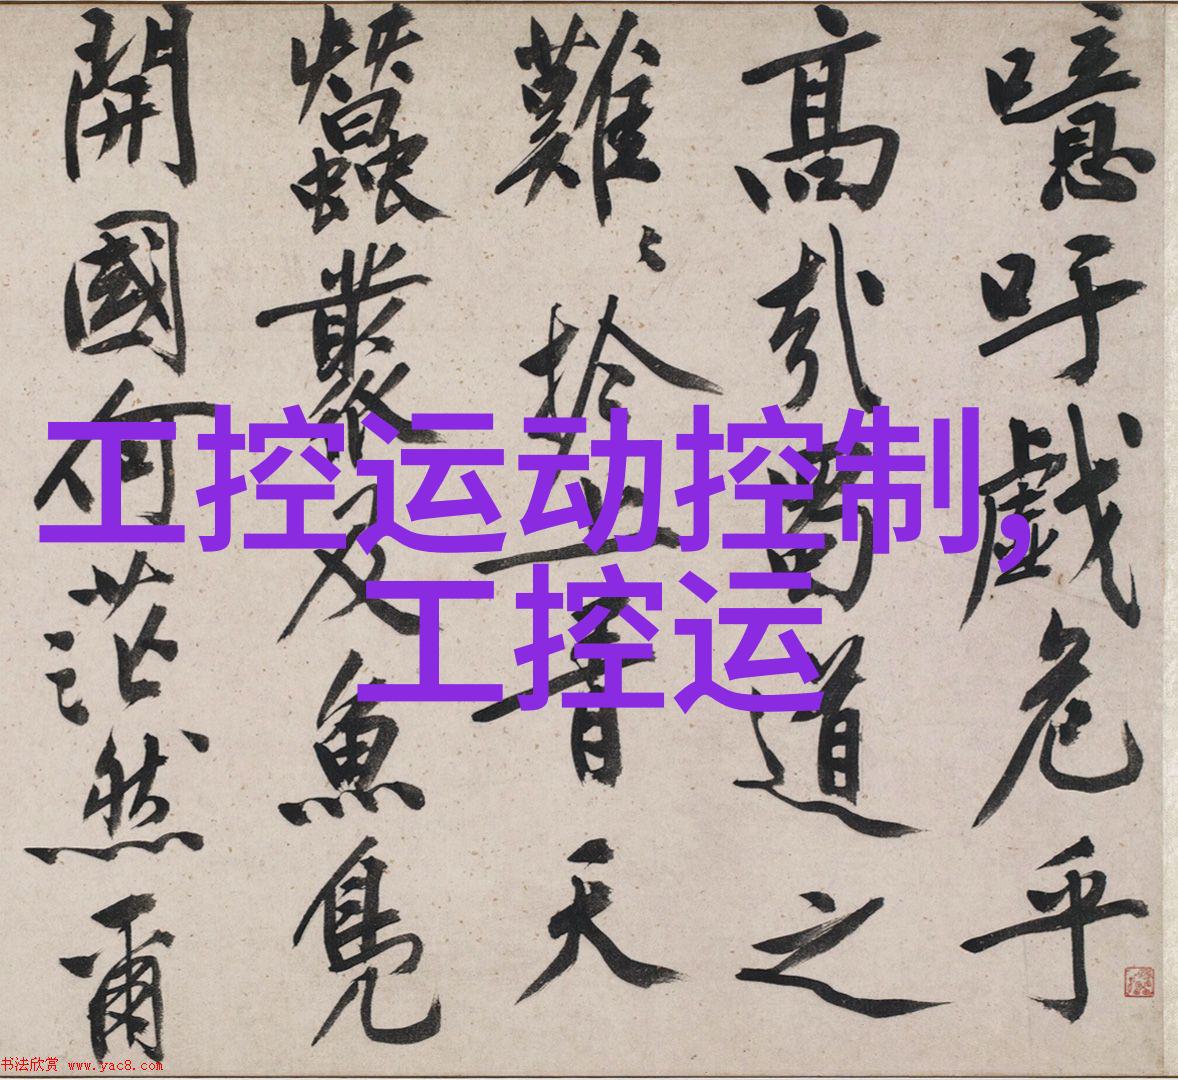 噫吁戲危乎
高哉蜀道之
難〻於上青天
蠶叢及魚鳧
開國何茫然爾
工控运动控制,
工控运
书法欣赏 www.yac8.com